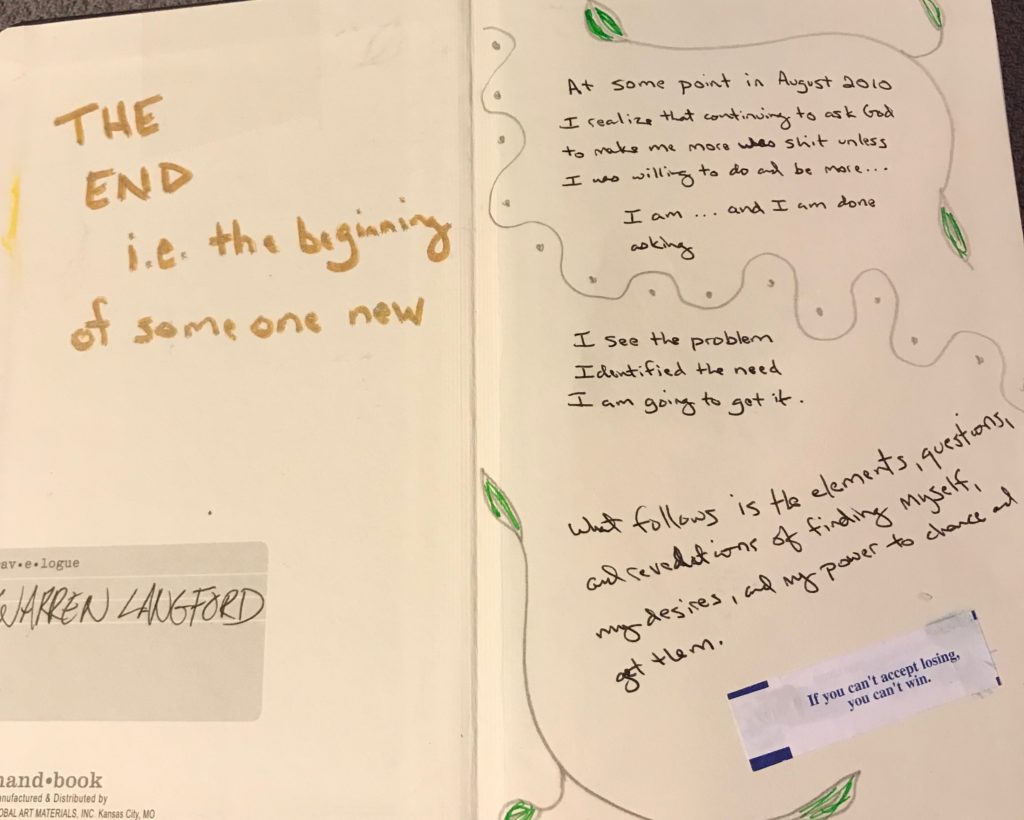 THE
END
i.e. the beginning
of someone new
av•e•logue
WARREN LANGFORD
hand•book
anufactured & Distributed by
OBAL ART MATERIALS, INC. Kansas City, MO
At some point in August 2010
I realize that continuing to ask God
to make me more was shit unless
I was willing to do and be more...
I am ... and I am done
asking
I see the problem
Identified the need
I am going to get it.
What follows is the elements, questions,
and revelations of finding myself,
my desires, and my power to chance and
get them.
If you can't accept losing,
you can't win.